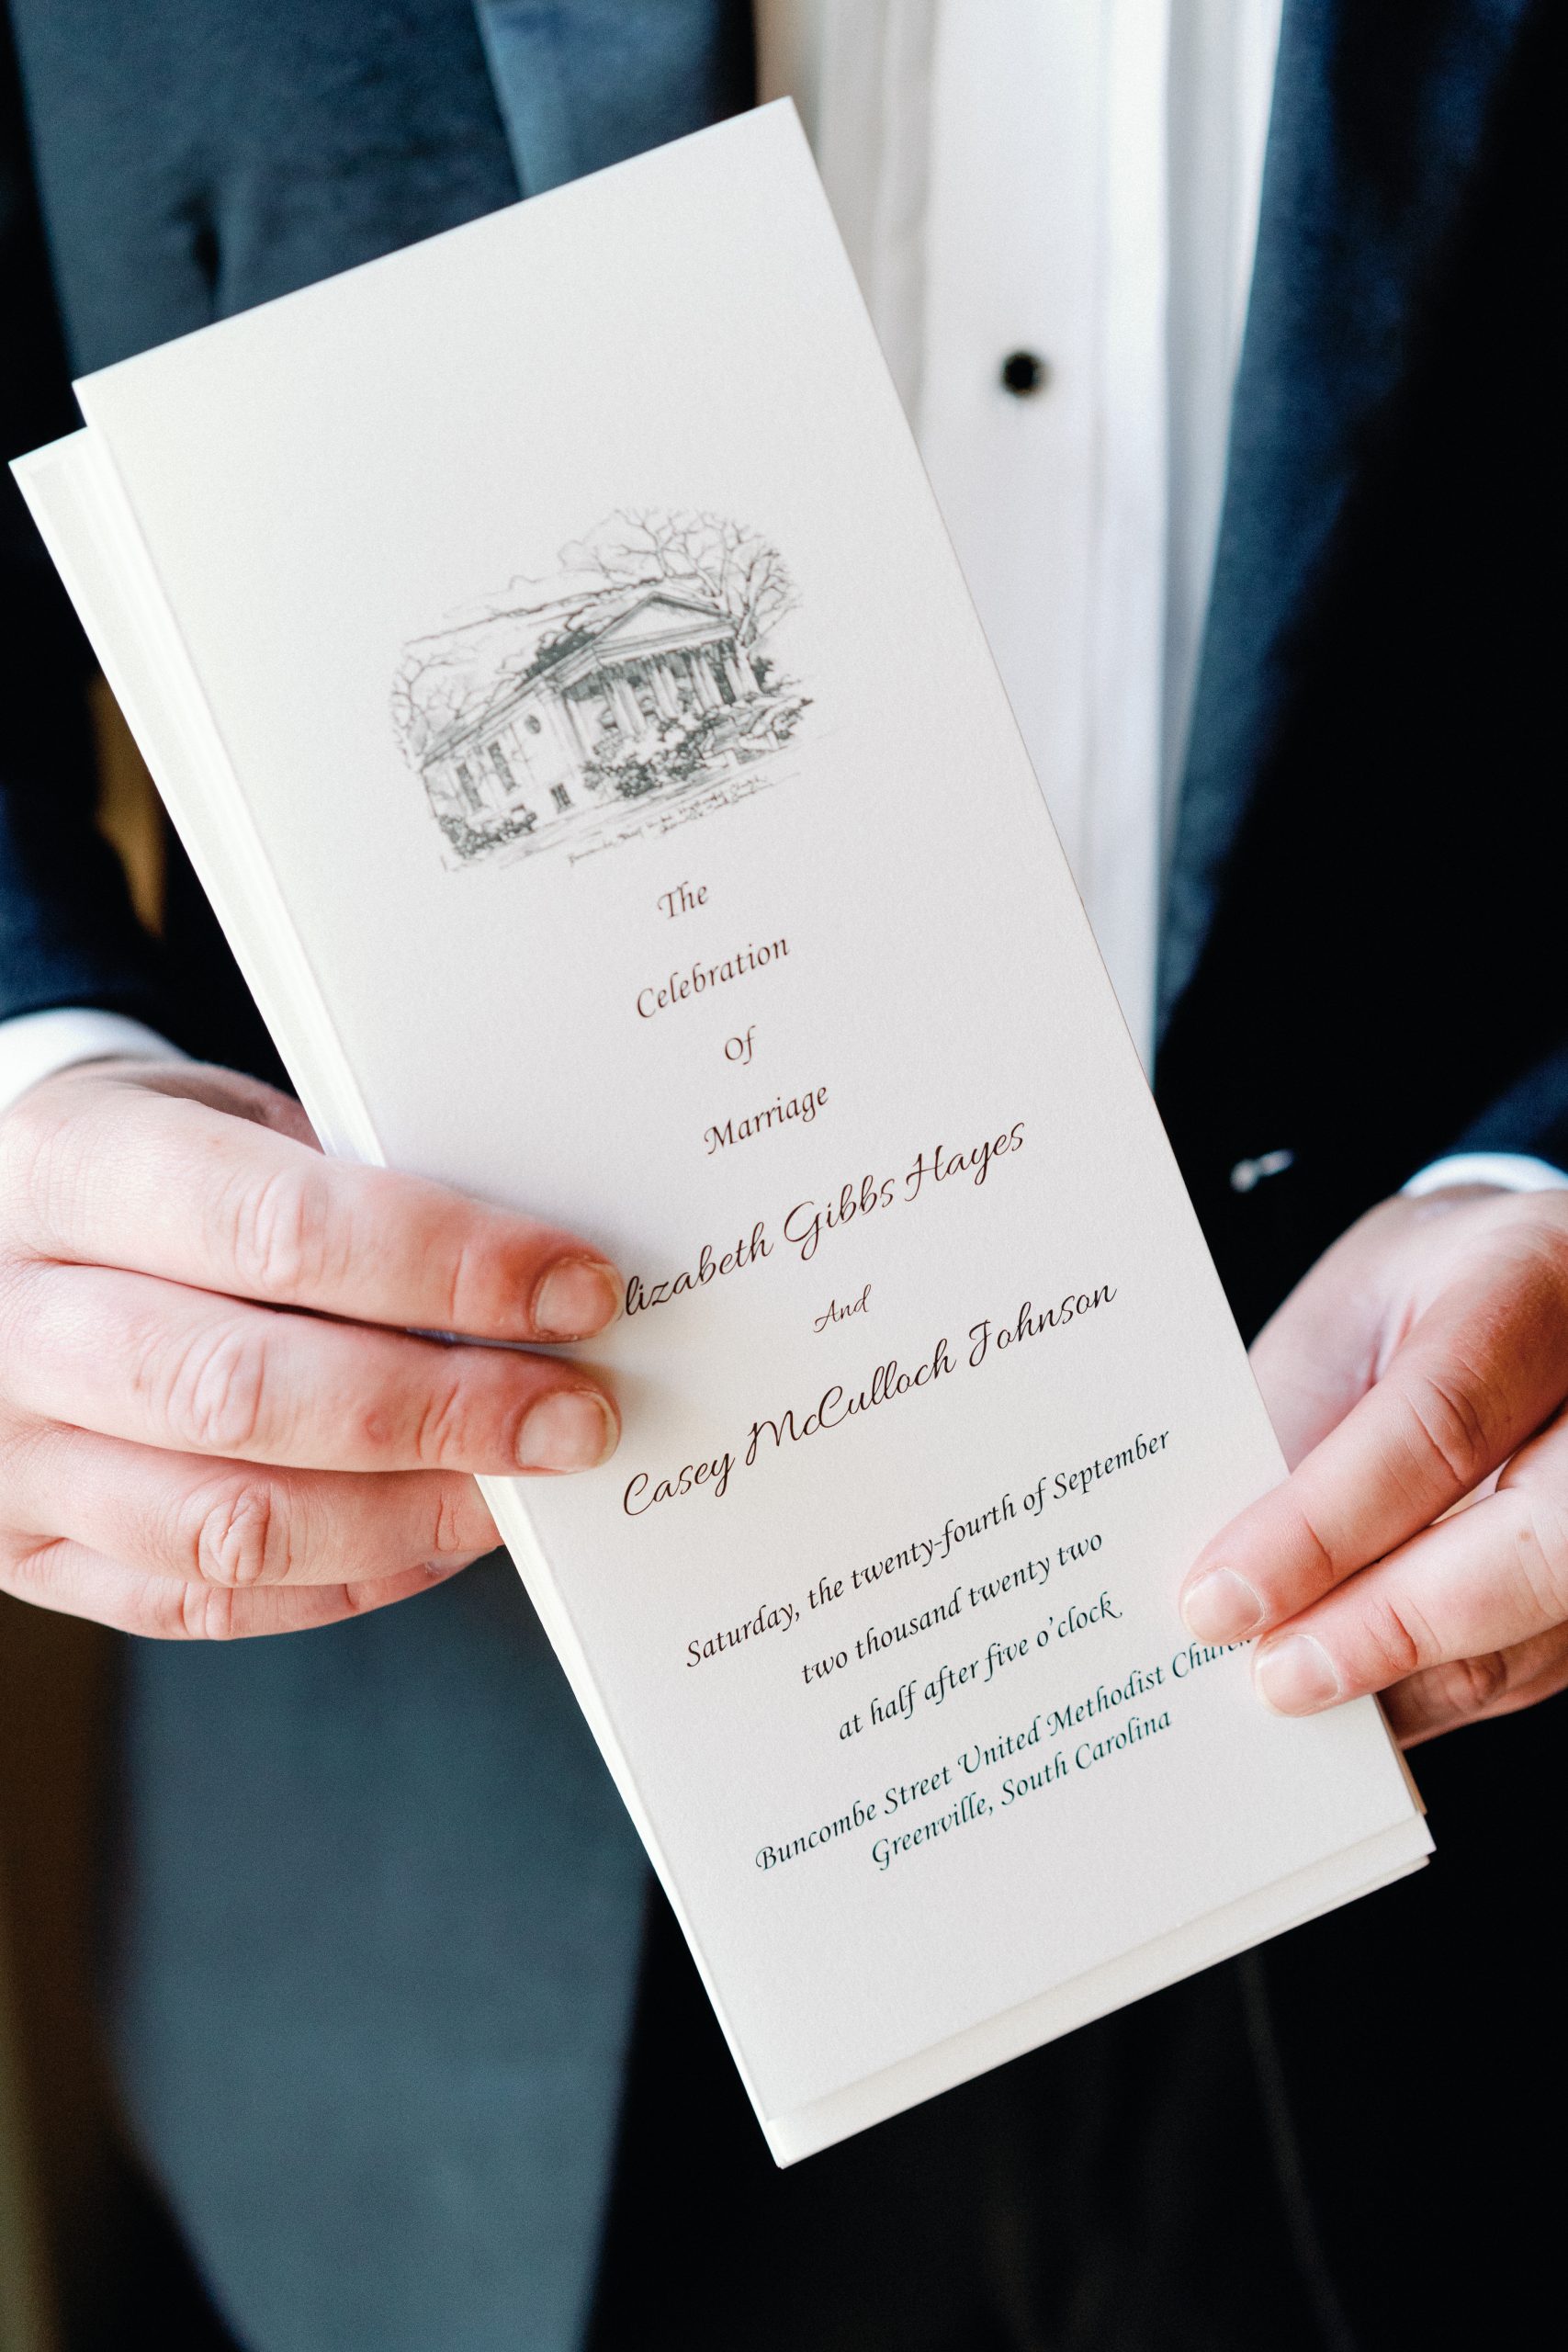 The
Celebration
Of
Marriage
lizabeth Gibbs Hayes
And
Casey McCulloch Johnson
Saturday, the twenty-fourth of September
two thousand twenty two
at half after five o'clock
Buncombe Street United Methodist Church
Greenville, South Carolina